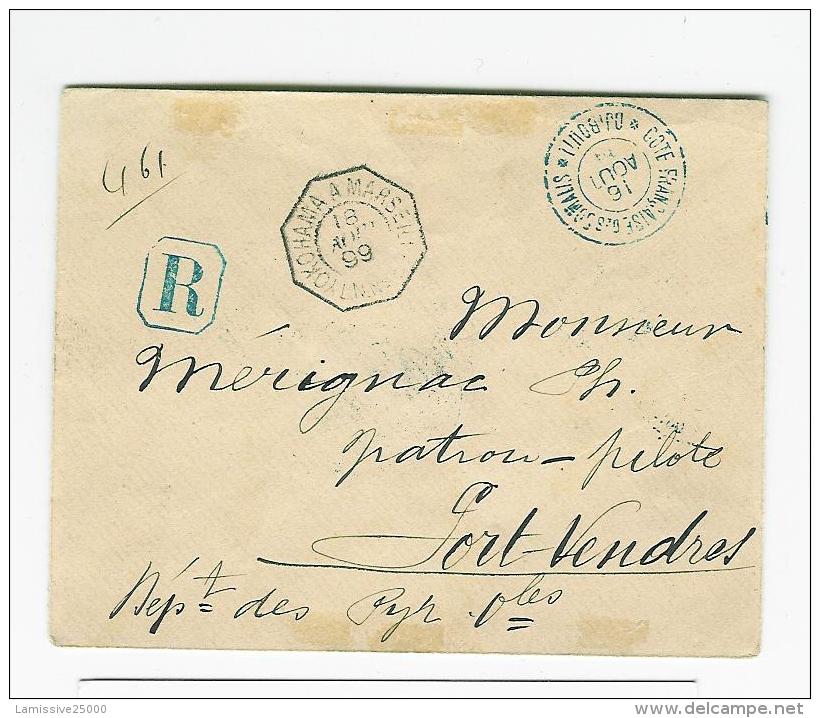 461
YOKOHAMA A MARSEILL
LN.N
18
AOUT
99
CÔTE FRANÇAISE DES SOMALIS
* DJIBOUTI *
16
AOUT
R
Monsieur
Mérignac Ph.
patron-pilote
Port-Vendres
Dépt des Pyr. Oles
Lamissive25000
delcampe.net